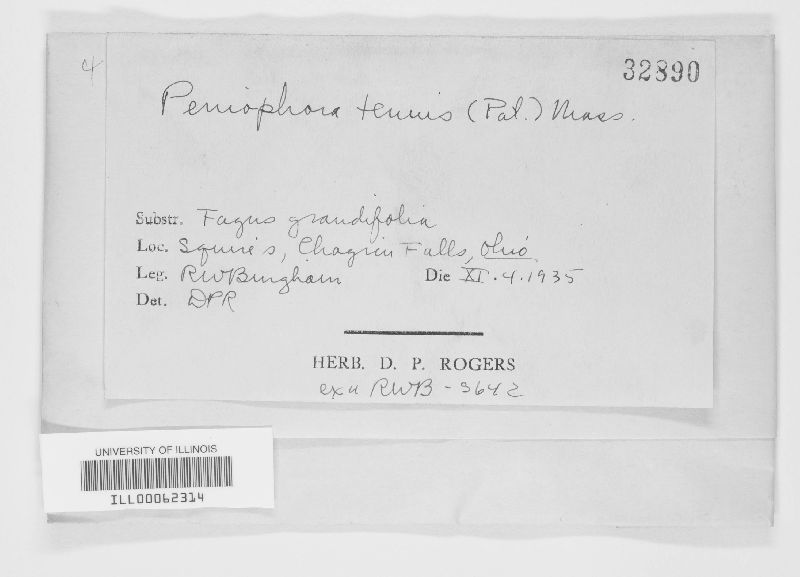 4
32890
Peniophora tenuis (Pat.) Mass.
Substr. Fagus grandifolia
Loc. Squire's, Chagrin Falls, Ohio
Leg. RWBingham Die XI. 4. 1935
Det. DPR
HERB. D. P. ROGERS
RWB - 3642
UNIVERSITY OF ILLINOIS
ILL00062314